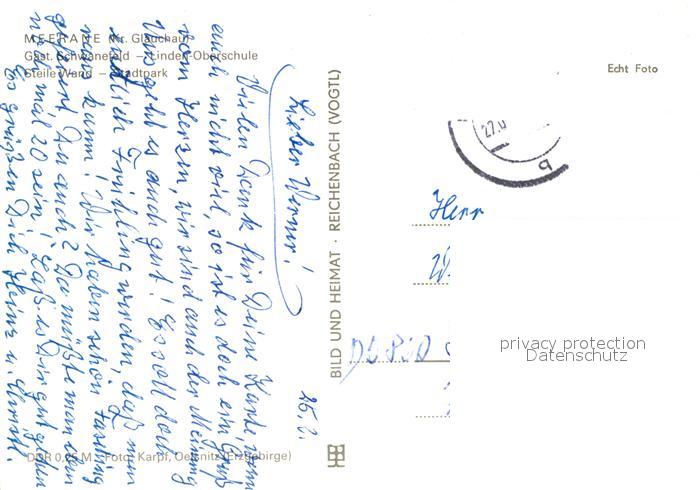 MEERANE (Kr. Glauchau)
Gast. Schwanefeld – Linden-Oberschule
Steile Wand – Stadtpark
Echt Foto
27.
Lieber Werner!
26.2.
Vielen Dank für Deine Karte, wenn
auch nicht viel, so ist es doch ein Gruß
vom Herzen, wir sind auch der Meinung
Uns geht es auch gut! Es soll doch
endlich Frühling werden, daß man
raus kann! Wir haben schon Fasching
gefeiert Du auch? Da müßte man
noch mal 20 sein! Laß es Dir gut gehen
Es grüßen Dich Heinz u. Christl.
BILD UND HEIMAT · REICHENBACH (VOGTL)
Herr
W.
DDR 0,25 M Foto: Karpf, Oelsnitz (Erzgebirge)
privacy protection
Datenschutz